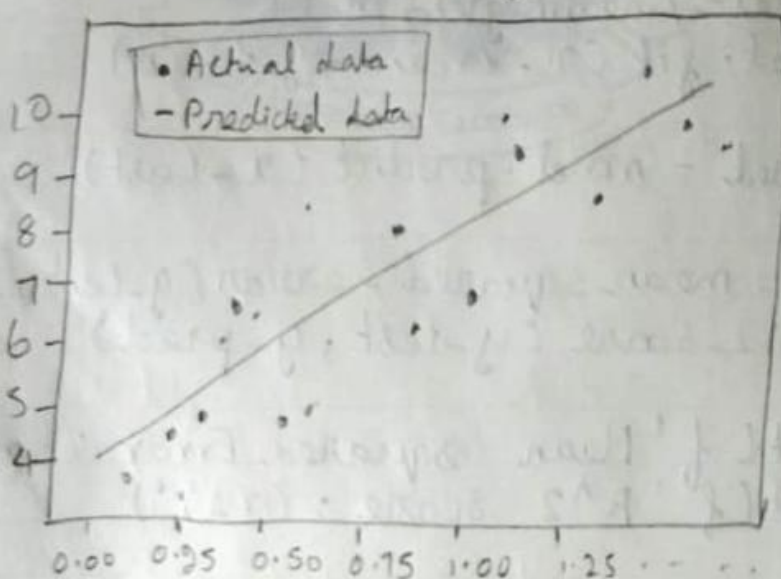 • Actual data
- Predicted data
10
9
8
7
6
5
4
0.00 0.25 0.50 0.75 1.00 1.25 - - -